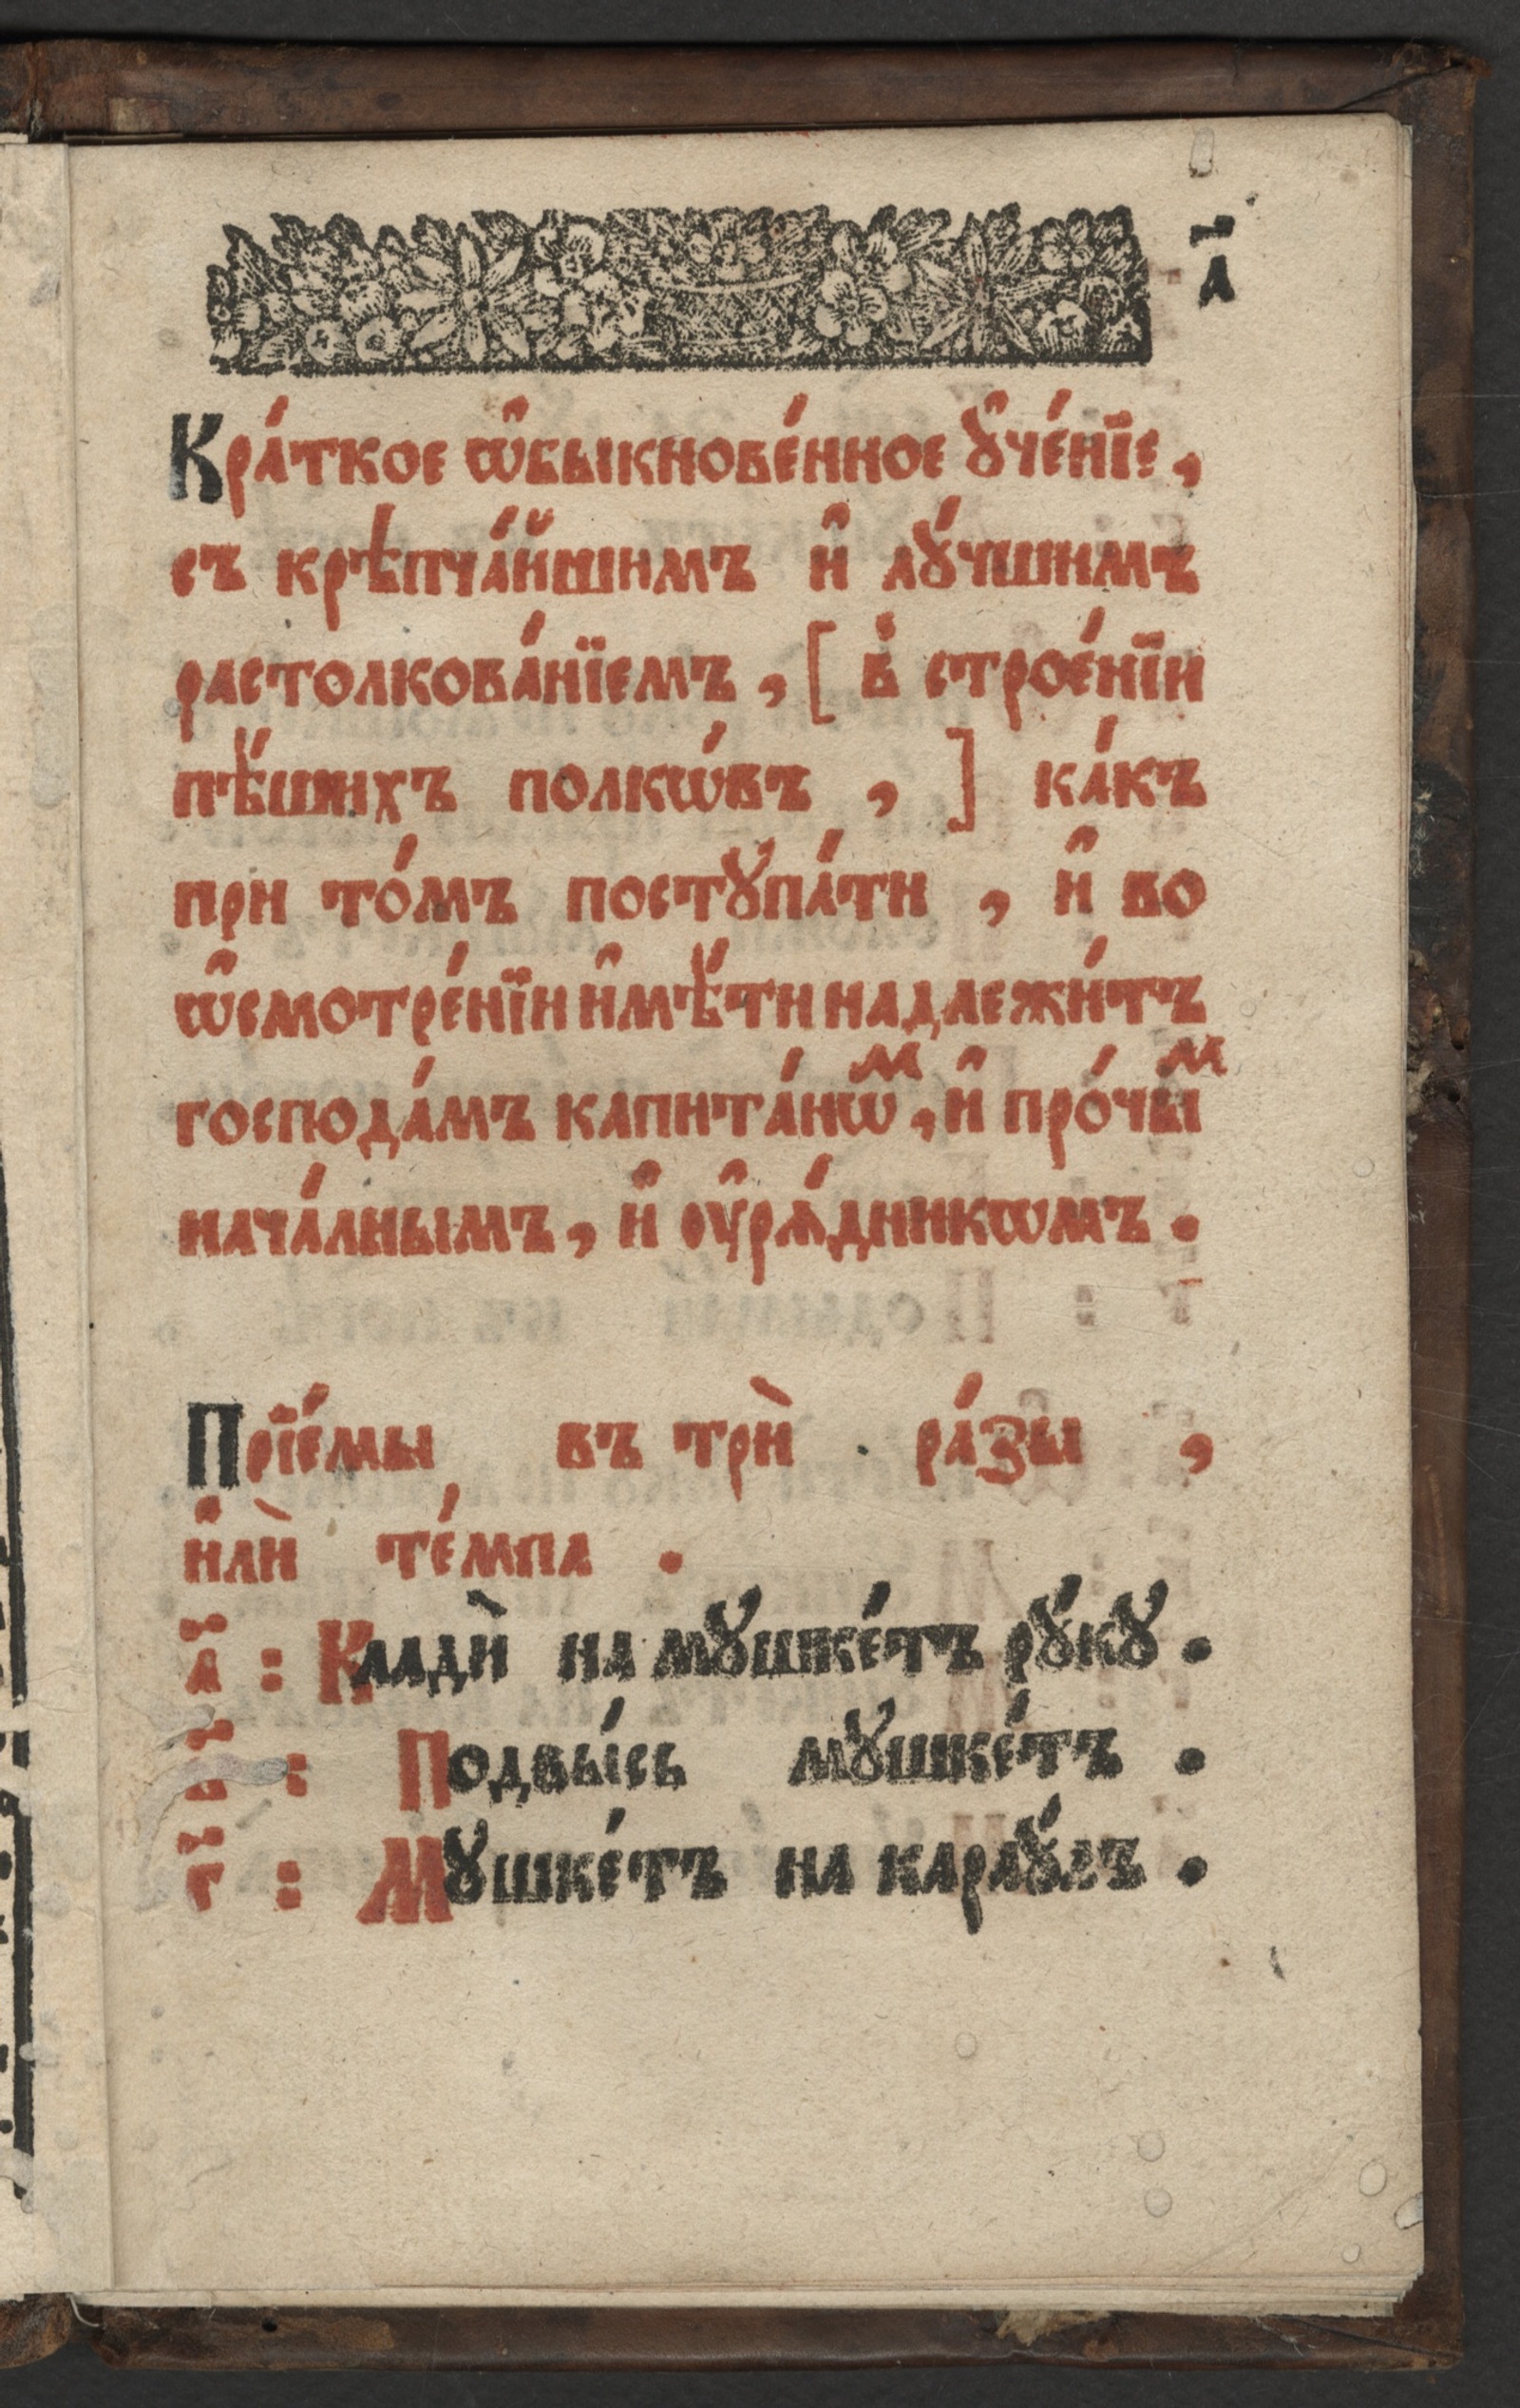 а҃
Кра́ткое ѡ҆быкнове́нное ᲂу҆че́нїе,
съ крѣпча́йшимъ и҆ лꙋ́чшимъ
растолкова́нїемъ, [ в̾ строе́нїи
пѣ́шихъ полкѡ́въ, ] ка́къ
при то́мъ постꙋпа́ти, и҆ во
ѡ҆смотре́нїи и҆мѣ́ти надлежи́тъ
господа́мъ капита́нѡⷨ, и҆ про́чыⷨ
нача́лнымъ, и҆ ᲂу҆рѧ́дникѡмъ.
Прїе́мы въ трѝ ра́зы,
и҆лѝ те́мпа.
а҃ : Кладѝ на мꙋшке́тъ рꙋ́кꙋ.
в҃ : Подвы́сь мꙋшке́тъ.
г҃ : Мꙋшке́тъ на караꙋ́лъ.